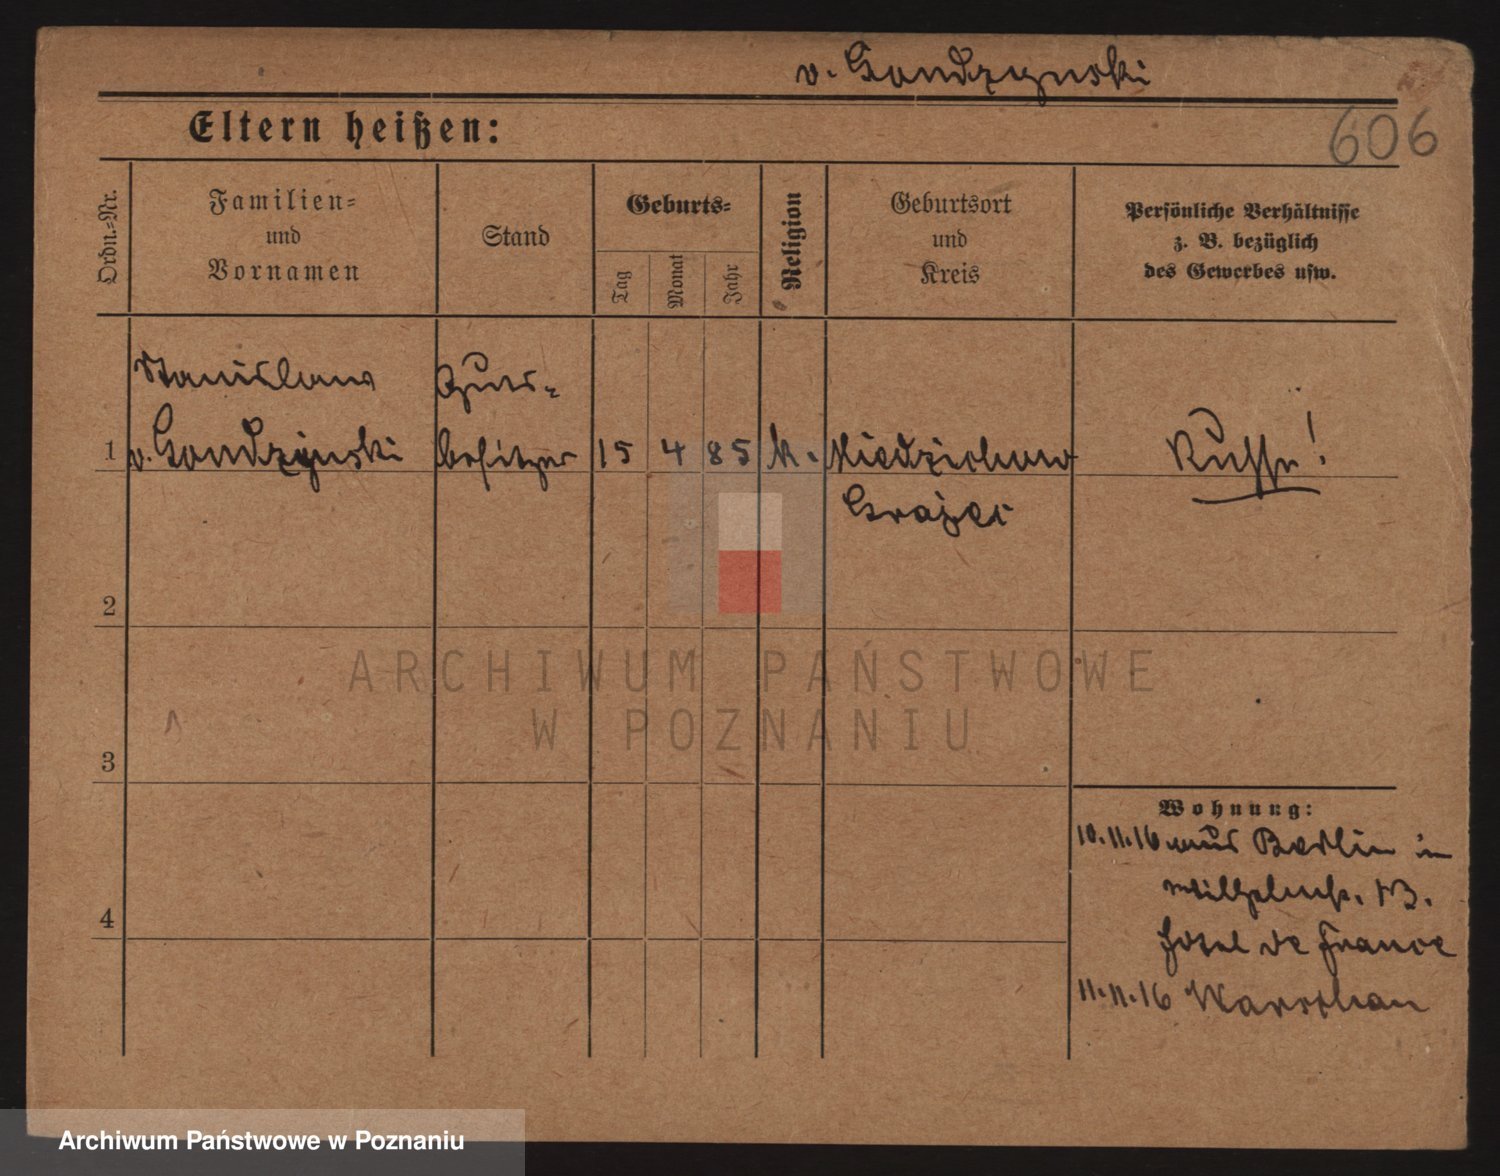 v. Gondzynski
606
Eltern heißen:
Ordn.-Nr.
Familien-
und
Vornamen
Stand
Geburts-
Tag
Monat
Jahr
Religion
Geburtsort
und
Kreis
Persönliche Verhältnisse
z. B. bezüglich
des Gewerbes usw.
Stanislaus Guts-
1 v. Gondzynski besitzer 15 4 85 k. Niedzichow Russe!
Grajec
2
3
4
Wohnung:
10.11.16 aus Berlin in
Wilhelmstr. 13.
Hotel de France
11.11.16 Warschau
ARCHIWUM PAŃSTWOWE
W POZNANIU
Archiwum Państwowe w Poznaniu